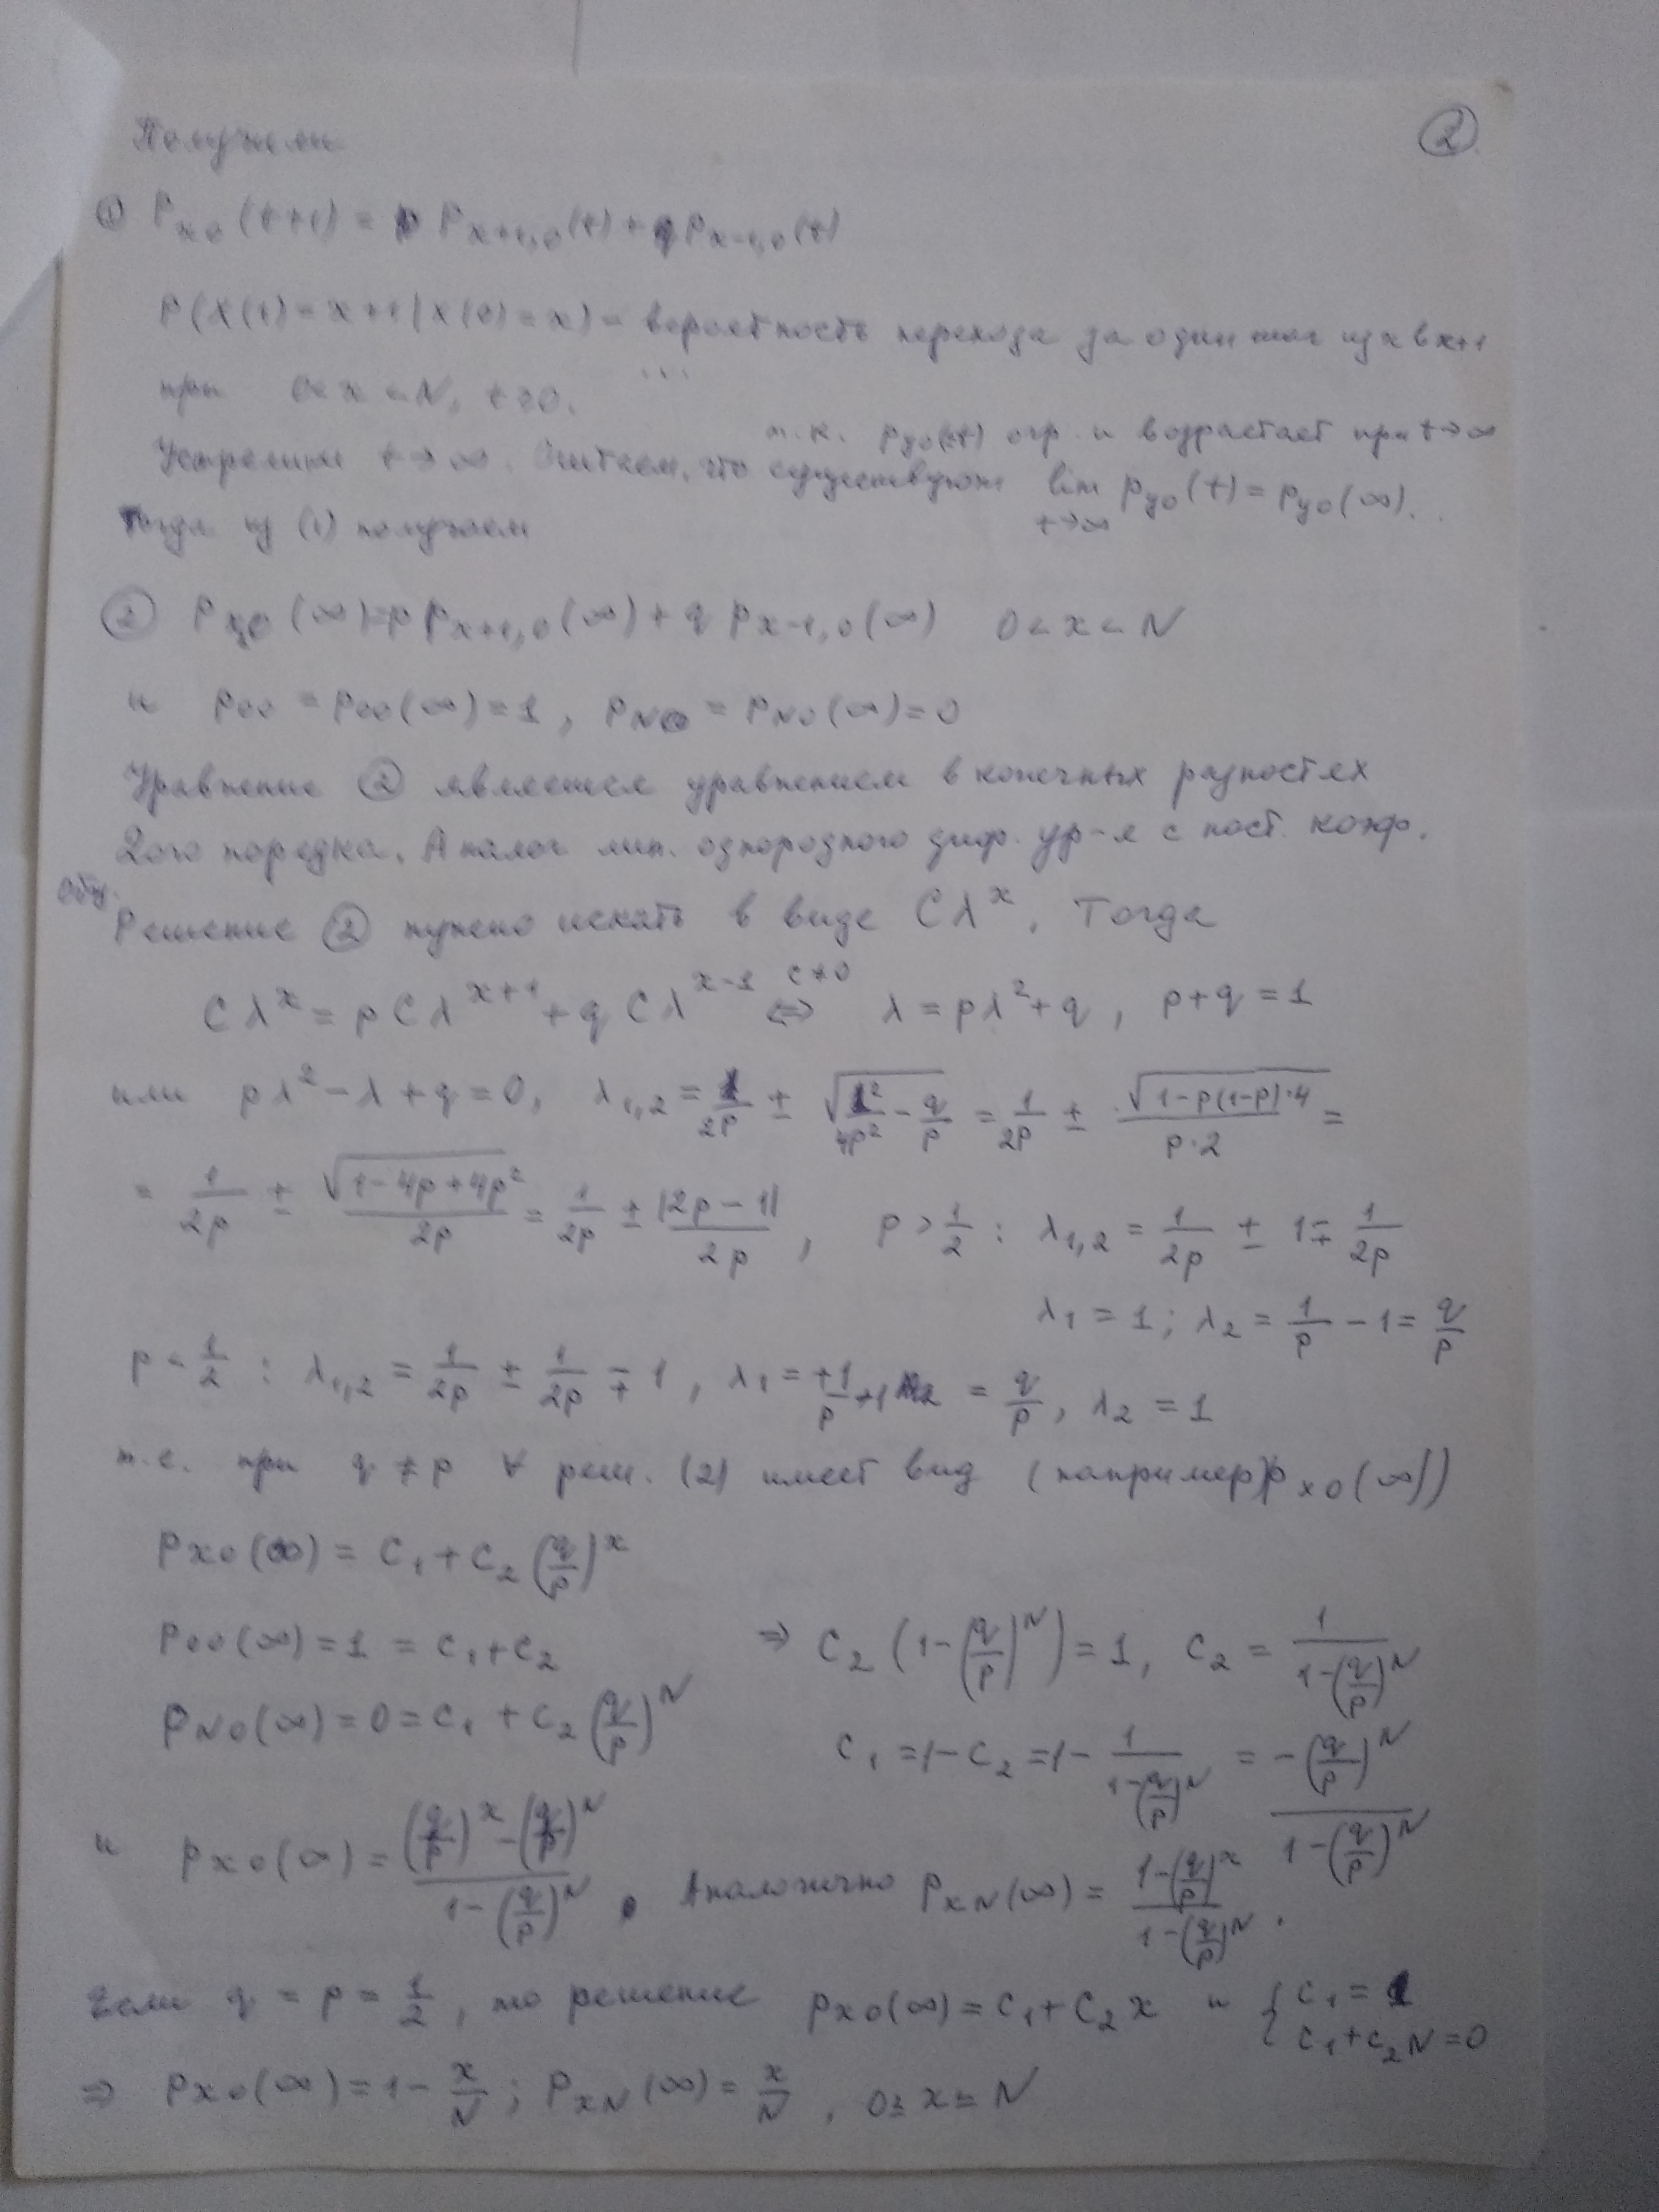 Получили ②
① P_{x0}(t+1) = p P_{x+1,0}(t) + q P_{x-1,0}(t)
P(X(1) = x+1 | X(0) = x) – вероятность перехода за один шаг из x в x+1
при 0 < x < N, t ≥ 0. ...
т.к. p_{y0}(t) огр. и возрастает при t→∞
Устремим t→∞. Считаем, что существуют lim_{t→∞} p_{y0}(t) = p_{y0}(∞).
Тогда из (1) получаем
② p_{x0}(∞) = p p_{x+1,0}(∞) + q p_{x-1,0}(∞) 0 < x < N
и p_{00} = p_{00}(∞) = 1, p_{N0} = p_{N0}(∞) = 0
Уравнение ② является уравнением в конечных разностях
2ого порядка. Аналог лин. однородного диф. ур-я с пост. коэф.
Общ.
Решение ② нужно искать в виде Cλ^x. Тогда
Cλ^x = pCλ^{x+1} + qCλ^{x-1} ⇔ (C≠0) λ = pλ² + q, p+q = 1
или pλ² - λ + q = 0, λ_{1,2} = 1/(2p) ± √(1²/(4p²) - q/p) = 1/(2p) ± √(1-p(1-p)·4)/(p·2) =
= 1/(2p) ± √(1-4p+4p²)/(2p) = 1/(2p) ± |2p-1|/(2p), p > 1/2 : λ_{1,2} = 1/(2p) ± 1 ∓ 1/(2p)
λ_1 = 1; λ_2 = 1/p - 1 = q/p
λ_{1,2} = 1/(2p) ± 1/(2p) ∓ 1, λ_1 = q/p, λ_2 = 1
т.е. при q ≠ p ∀ реш. (2) имеет вид (например p_{x0}(∞))
p_{x0}(∞) = C_1 + C_2 (q/p)^x
p_{00}(∞) = 1 = C_1 + C_2 ⇒ C_2 (1-(q/p)^N) = 1, C_2 = 1/(1-(q/p)^N)
p_{N0}(∞) = 0 = C_1 + C_2 (q/p)^N C_1 = 1 - C_2 = 1 - 1/(1-(q/p)^N) = -(q/p)^N/(1-(q/p)^N)
и p_{x0}(∞) = ((q/p)^x - (q/p)^N)/(1-(q/p)^N). Аналогично p_{xN}(∞) = (1-(q/p)^x)/(1-(q/p)^N).
Если q = p = 1/2, то решение p_{x0}(∞) = C_1 + C_2 x и { C_1 = 1
C_1 + C_2 N = 0
⇒ p_{x0}(∞) = 1 - x/N ; p_{xN}(∞) = x/N, 0 ≤ x ≤ N